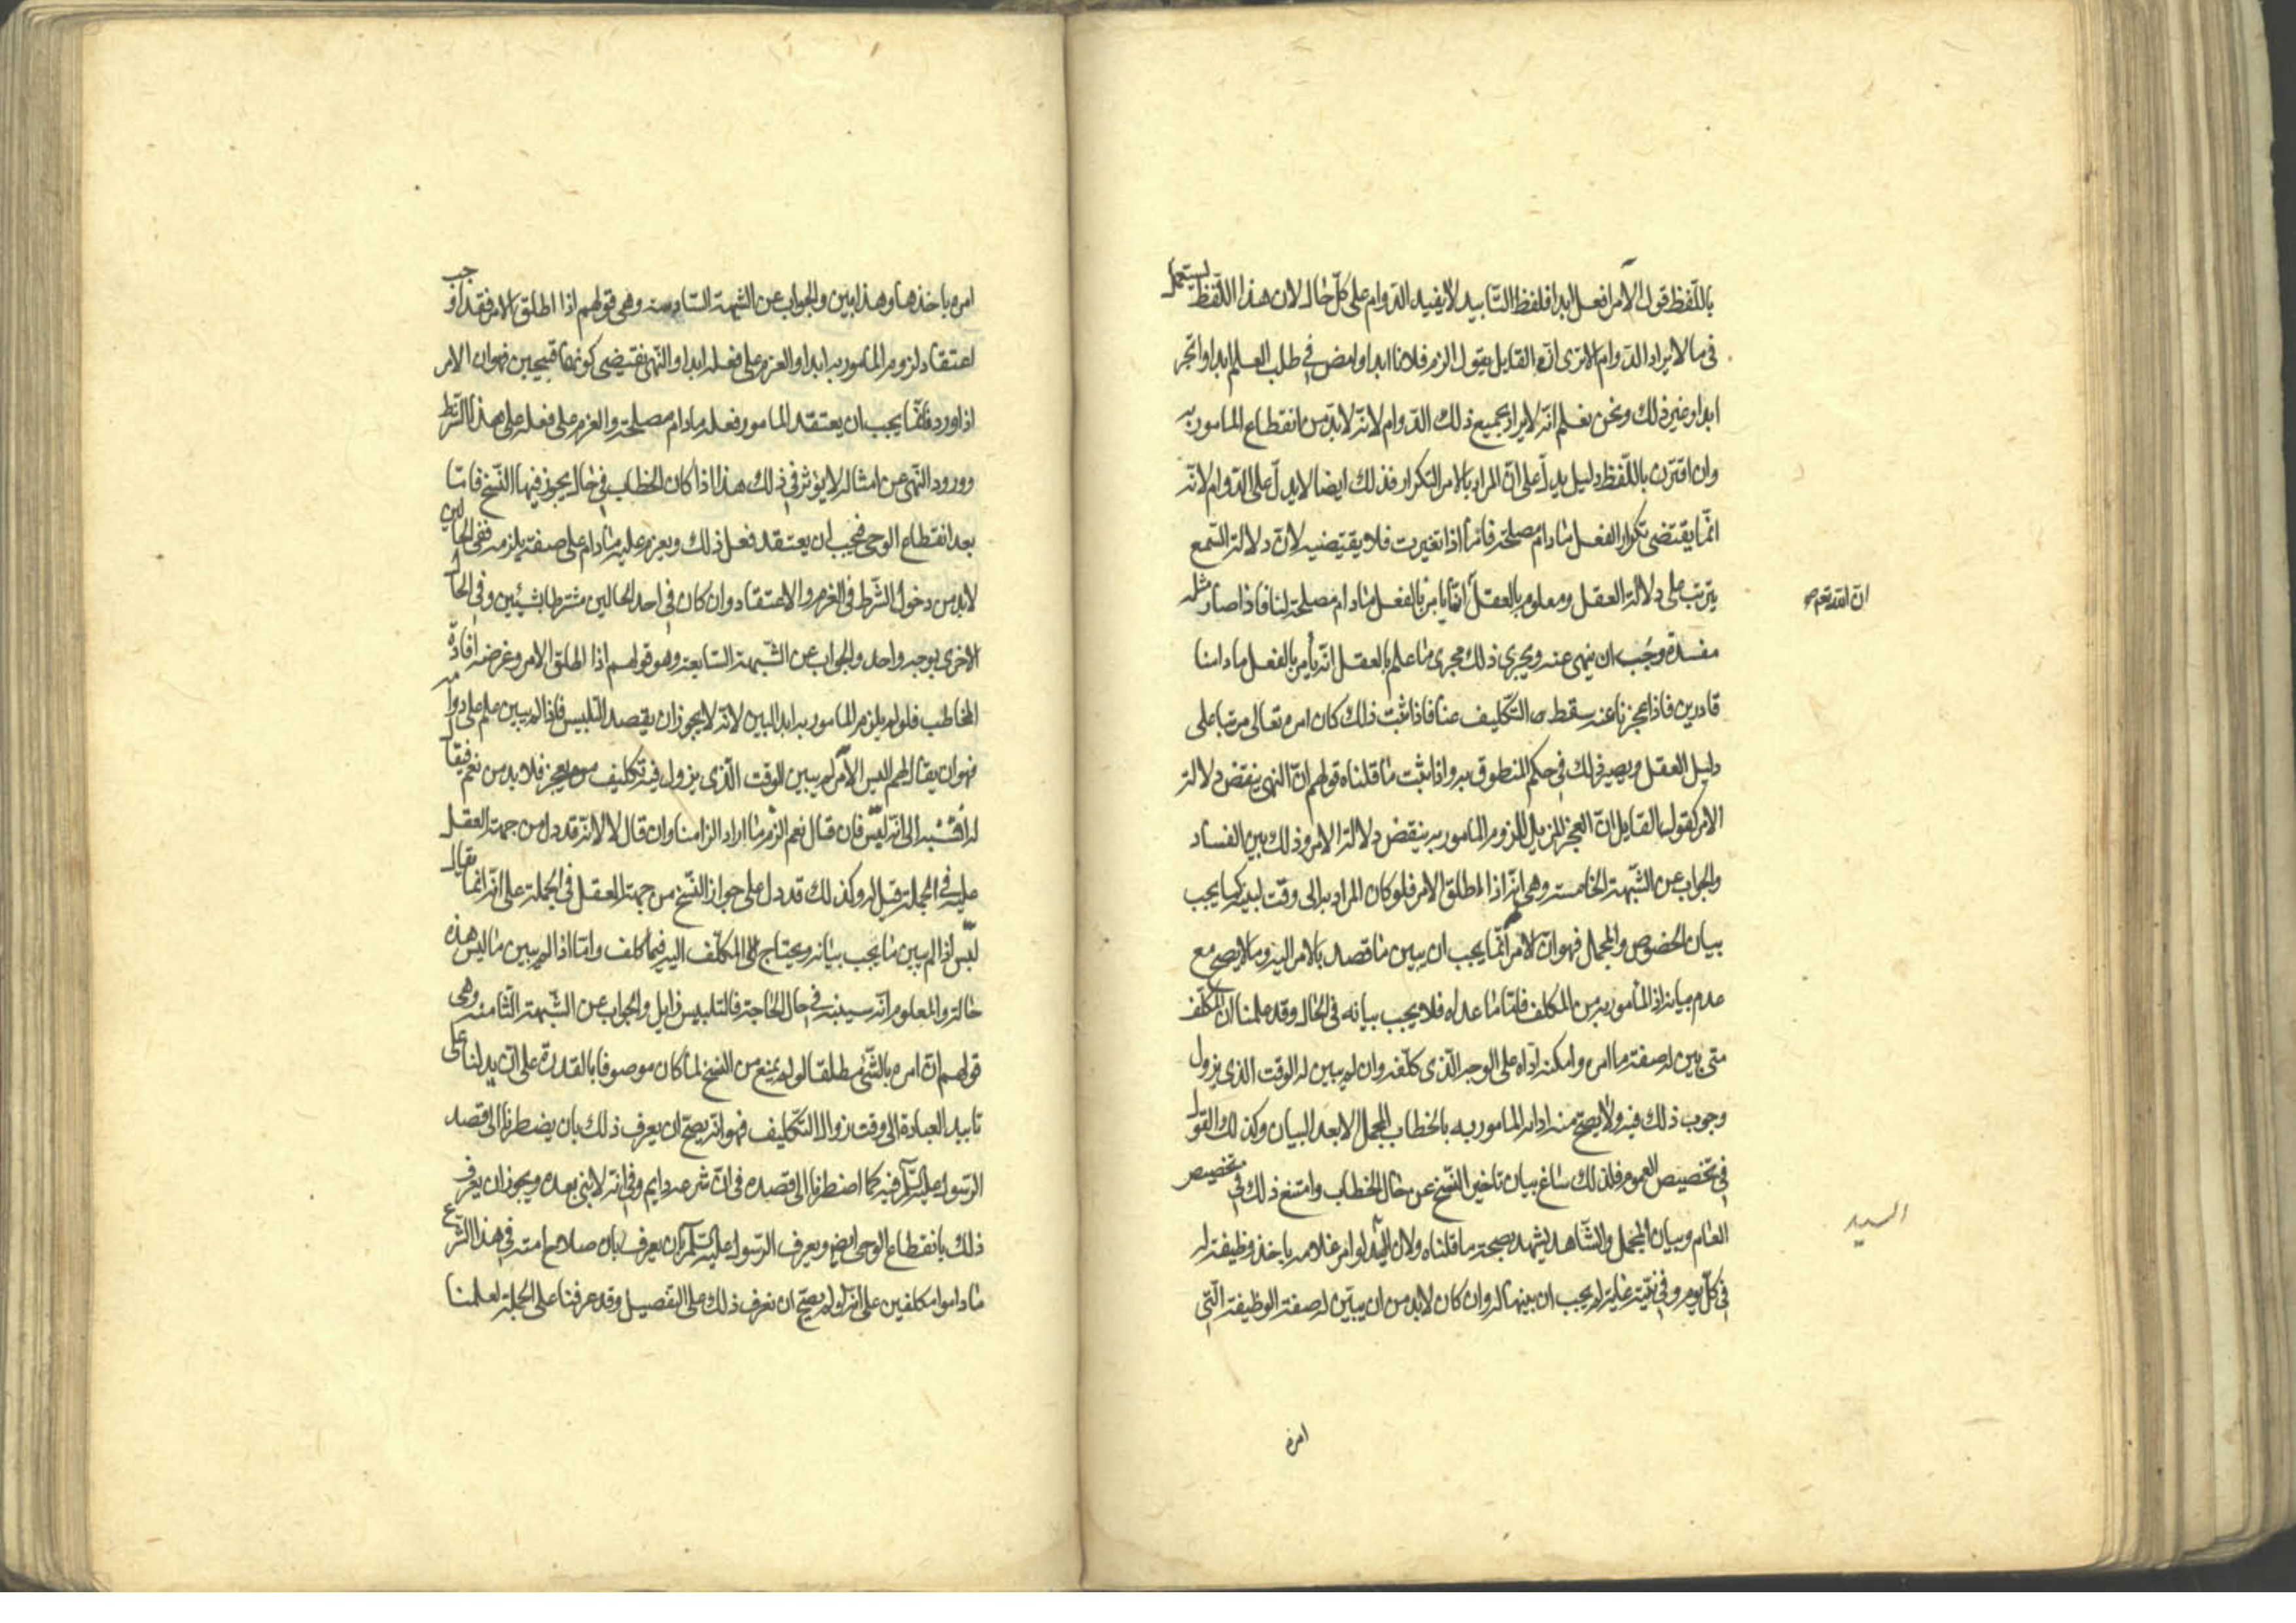 باللّفظ قول الآمر افعل ابدا فلفظ التّابيد لا يفيد الدّوام على كلّ حال لان هذا اللّفظ يستعمل
فى ما لا يراد الدّوام الا ترى انّ القايل يقول الزم فلانا ابدا وامض في طلب العلم ابدا واتجر
ابدا وغير ذلك ونحن نعلم انّه لا يراد بجميع ذلك الدّوام لانّه لا بدّ من انقطاع المامور به
وان اقترن باللّفظ دليل يدلّ على انّ المراد بالامر التكرار فذلك ايضا لا يدلّ على الدّوام لانّه
انّما يقتضى تكرار الفعل ما دام مصلحة فامّا اذا تغيرت فلا يقتضيه لانّ دلالة السّمع
يترتب على دلالة العقل ومعلوم بالعقل انّما يامر بالفعل ما دام مصلحة لنا فاذا صار مثله
ان الله تعم صح
مفسدة وجب ان ينهى عنه ويجرى ذلك مجرى ما علم بالعقل انّه يأمر بالفعل ما دامنا
قادرين فاذا عجزنا عنه سقط التّكليف عنا فاذا ثبت ذلك كان امره تعالى مرتبا على
دليل العقل ويصير ذلك في حكم المنطوق به واذا ثبت ما قلناه قولهم انّ النهى ينقض دلالة
الامر كقول القايل انّ العجز المزيل للزوم المامور به ينقض دلالة الامر وذلك بيّن الفساد
والجواب عن الشّبهة الخامسة وهى انّه اذا اطلق الامر فلو كان المراد به الى وقت لبينه كما يجب
بيان الخصوص والمجمل فهو انّ الآمر انّما يجب ان يبين ما قصد بالامر اليه وما لا يصح مع
عدم بيانه اذ المأمور به من المكلف فامّا ما عداه فلا يجب بيانه فى الحال وقد علمنا انّ المكلّف
متى بين له صفة ما امر وامكنه اداه على الوجه الّذى كلّفه وان لم يبين له الوقت الذى يزول
وجوب ذلك فيه ولا يصح منه اداء المامور به بالخطاب المجمل الا بعد البيان وكذلك القول
فى تخصيص العموم فلذلك ساغ بيان تاخير النّسخ عن حال الخطاب وامتنع ذلك في تخصيص
العام وبيان المجمل والشّاهد يشهد بصحة ما قلناه ولان السّيّد لو امر غلامه باخذ وظيفة له
السيد
فى كلّ يوم وفى نيّته غاية لم يجب ان يبينها له وان كان لا بد من ان يبيّن له صفة الوظيفة الّتى
امره
امره باخذها وهذا بين والجواب عن الشّبهة السّادسة وهى قولهم اذا اطلق الامر فقد اوجب
اعتقاد لزوم المامور به ابدا والعزم على فعله ابدا والنّهى يقتضى كونهما قبيحين فهو ان الامر
اذا ورد فانّما يجب ان يعتقد المامور فعله ما دام مصلحة والعزم على فعله على هذا الشّرط
وورود النّهى عن امثاله لا يؤثر في ذلك هذا اذا كان الخطاب فى حال يجوز فيها النّسخ فامّا
بعد انقطاع الوحى فيجب ان يعتقد فعل ذلك ويعزم عليه ما دام على صفة يلزمه ففى الحالين
لا بد من دخول الشّرط فى العزم والاعتقاد وان كان فى احد الحالين مشترطا بشيئين وفى الحال
الاخرى بوجه واحد والجواب عن الشّبهة السّابعة وهو قولهم اذا اطلق الامر وغرضه افادة
المخاطب فلو لم يلزم المامور به ابدا لبين لانّه لا يجوز ان يقصد التلبيس فاذا لم يبين علم على دوامه
فهو ان يقال لهم اليس الآمر لم يبين الوقت الّذى يزول فيه تكليف من يعجز فلا بد من نعم فيقال
له افتنسبه الى انّه لبّس فان قال نعم الزم ما اراد الزامنا وان قال لا لانّه قد دل من جهة العقل
عليه فى الجملة قيل له وكذلك قد دل على جواز النّسخ من جهة العقل فى الجملة على انّه انّما يقال
لبّس اذا لم يبين ما يجب بيانه ويحتاج المكلّف اليه فيما كلف وامّا اذا لم يبين ما ليس هذه
حالته والمعلوم انّه سيبينه فى حال الحاجة فالتلبيس زايل والجواب عن الشّبهة الثّامنة وهى
قولهم انّ امره بالشّئ مطلقا لو لم يمنع من النّسخ لما كان موصوفا بالقدرة على ان يدلنا على
تابيد العبادة الى وقت زوال التّكليف فهو انّه يصحّ ان يعرف ذلك بان يضطرنا الى قصد
الرّسول عليه السّلم فيه كما اضطرنا الى قصده فى انّ شرعه دايم وفى انّه لا نبى بعده ويجوز ان يعرف
ذلك بانقطاع الوحى ايض ويعرف الرّسول عليه السّلم بان يعرف بان صلاح امته فى هذا الشّرع
ما داموا مكلفين على انّه لو لم يصحّ ان نعرف ذلك على التفصيل وقد عرفنا على الجملة لعلمنا